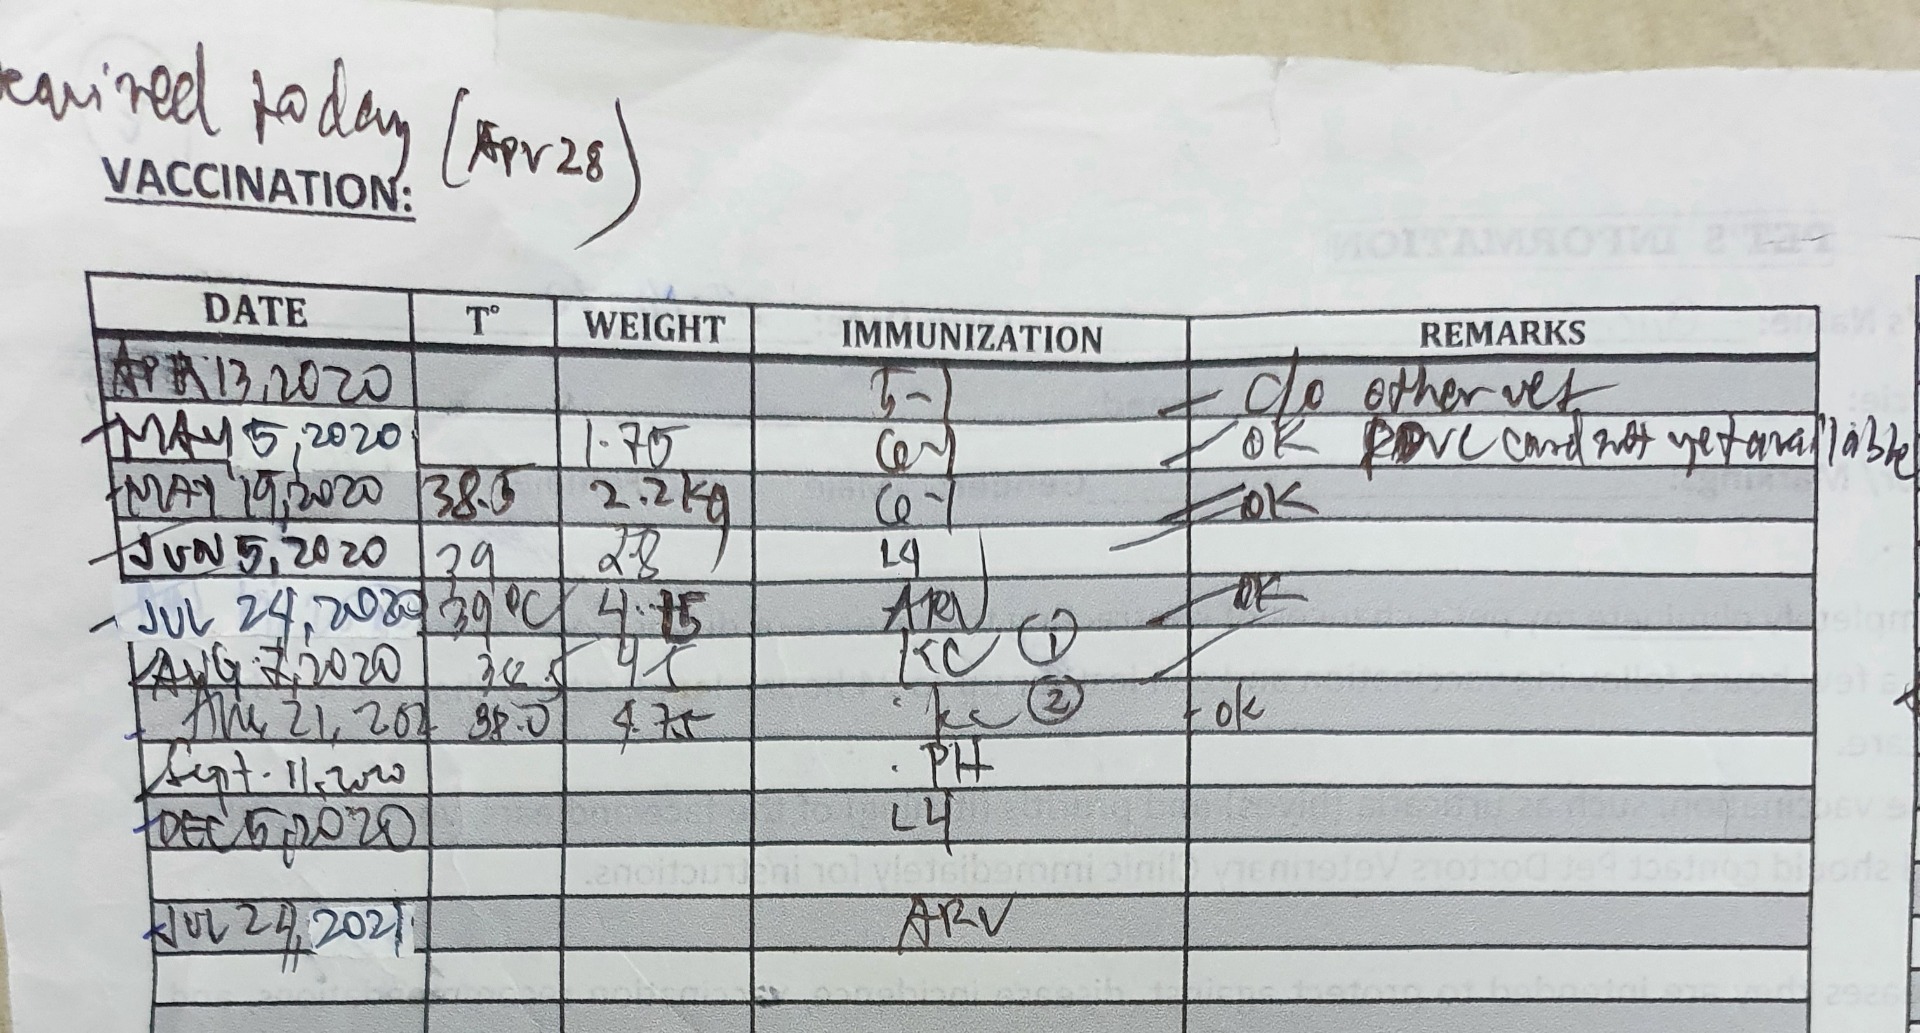 today (Apr 28)
VACCINATION:
DATE T° WEIGHT IMMUNIZATION REMARKS
APR 13, 2020 5-1 c/o other vet
MAY 5, 2020 1.75 6-1 OK PDVC card not yet available
MAY 19, 2020 38.5 2.2kg 6-1 OK
JUN 5, 2020 39 2.8 L4
JUL 24, 2020 39°C 4.15 ARV OK
AUG 7, 2020 KC 1
21, 202 38.0 4.75 KC 2 ok
Sept. 11, 2020 PH
DEC 5, 2020 L4
JUL 24, 2021 ARV